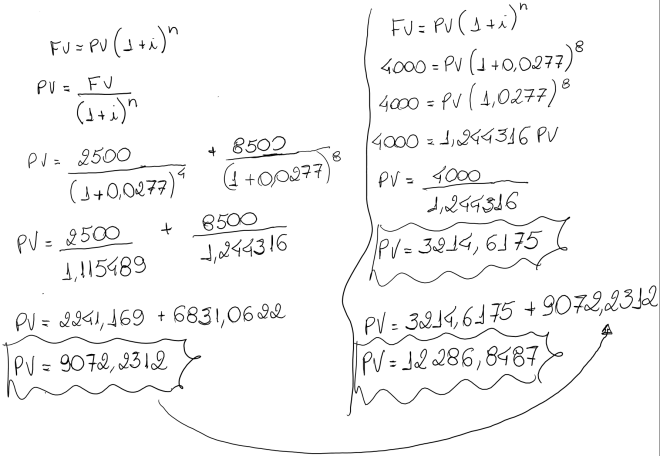 FV = PV(1+i)^n
PV = FV/(1+i)^n
PV = 2500/(1+0,0277)^4 + 8500/(1+0,0277)^8
PV = 2500/1,115489 + 8500/1,244316
PV = 2241,169 + 6831,0622
PV = 9072,2312
FV = PV(1+i)^n
4000 = PV(1+0,0277)^8
4000 = PV(1,0277)^8
4000 = 1,244316 PV
PV = 4000/1,244316
PV = 3214,6175
PV = 3214,6175 + 9072,2312
PV = 12286,8487